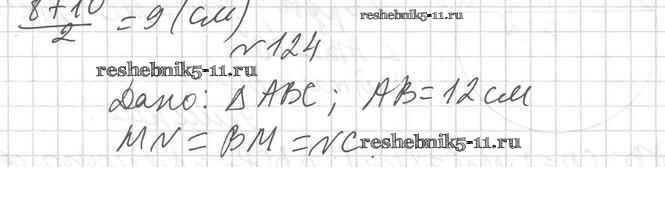 8+10/2 = 9 (см)
reshebnik5-11.ru
№124
reshebnik5-11.ru
Дано: Δ ABC; AB = 12 см
MN = BM = NC reshebnik5-11.ru